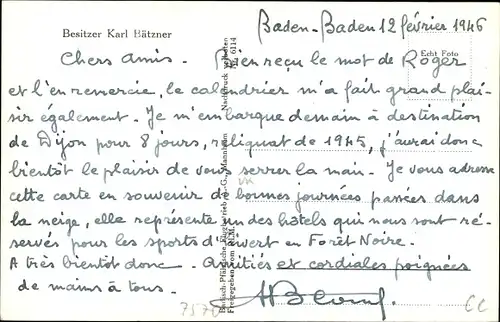 Besitzer Karl Bätzner
Baden-Baden 12 février 1946
Echt Foto
Chers amis. Bien reçu le mot de Roger
et l'en remercie, le calendrier m'a fait grand plai-
sir également. Je m'embarque demain à destination
de Dijon pour 8 jours, reliquat de 1945, j'aurai donc
bientôt le plaisir de vous serrer la main. Je vous adresse
cette carte en souvenir de bonnes journées passées dans
la neige, elle représente un des hôtels qui nous sont ré-
servés pour les sports d'hivert en Forêt Noire.
A très bientôt donc. Amitiés et cordiales poignées
de mains à tous.
Badisch-Pfälzische Flugbetrieb A.-G., Mannheim
Freigegeben vom R.L.M.
Nachdruck verboten
Nr. 6114
7570
CC